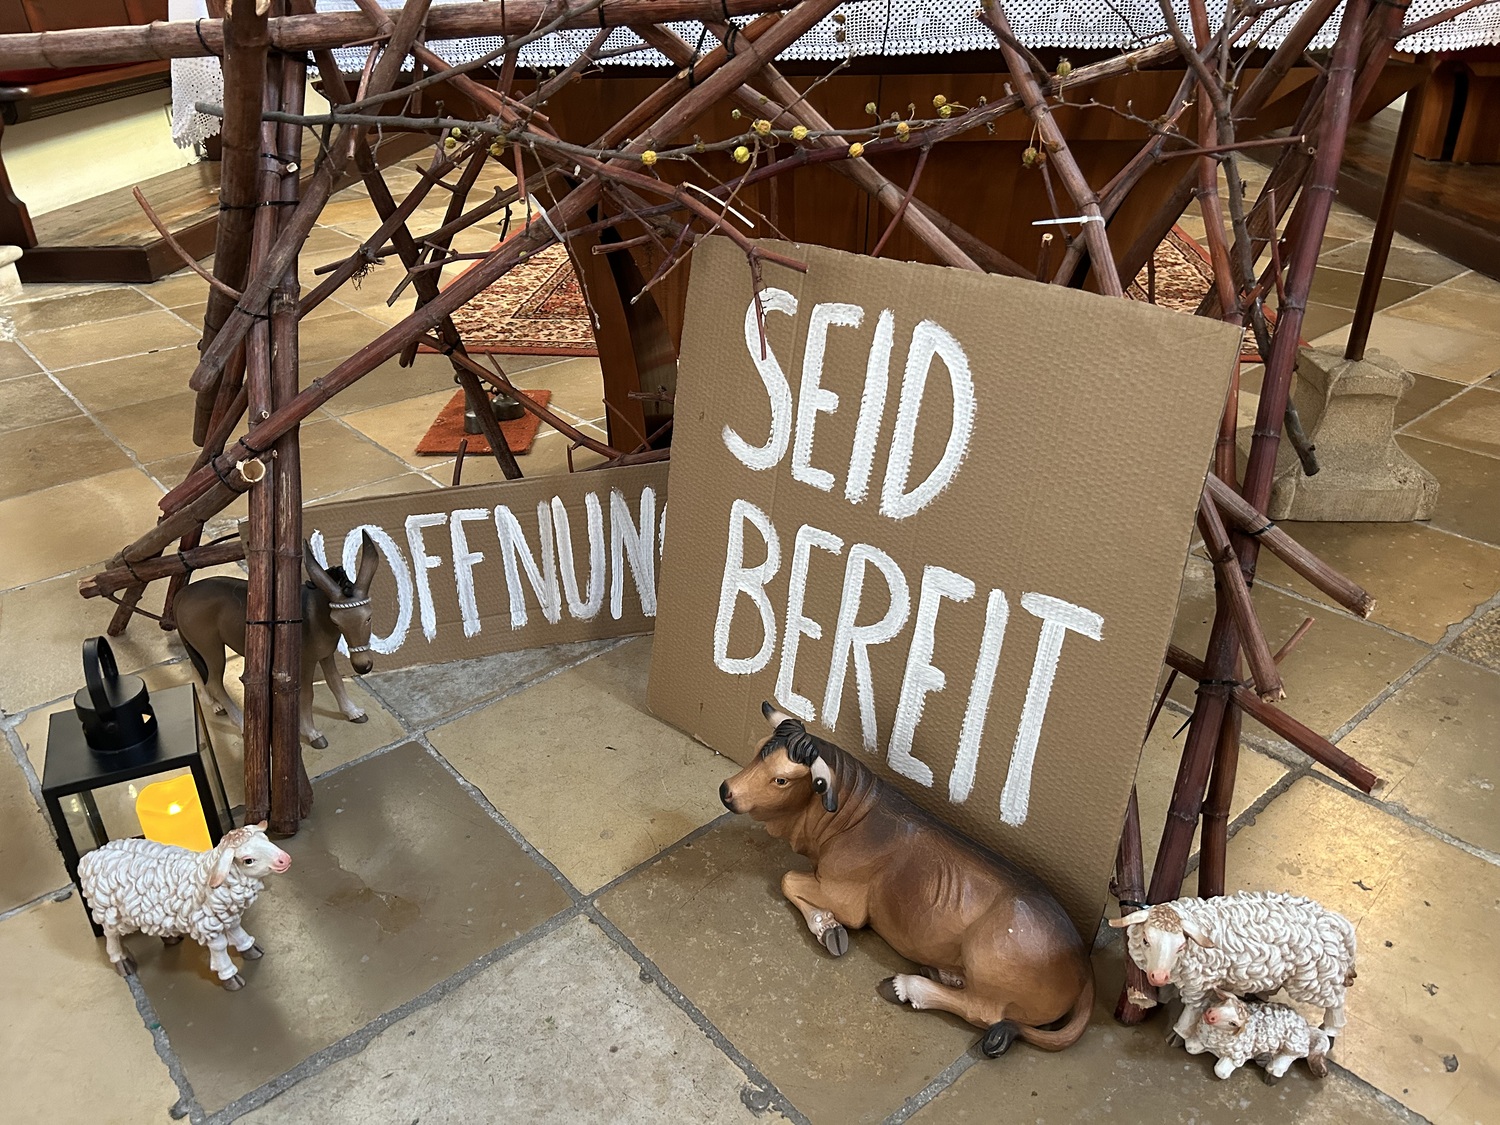 HOFFNUNG
SEID
BEREIT